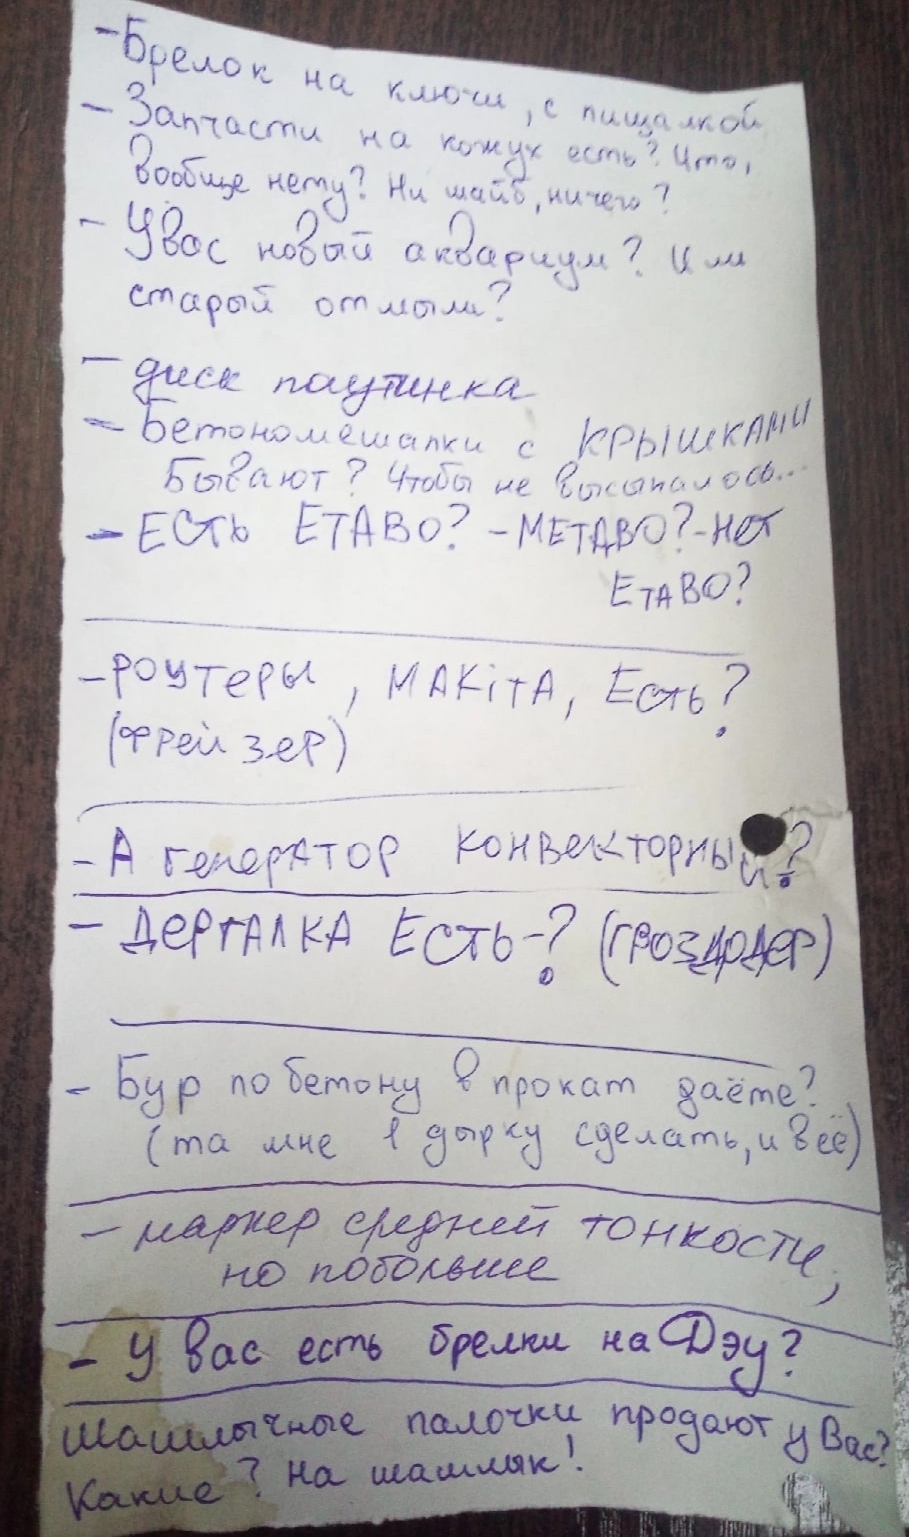 - Брелок на ключи, с пищалкой
- Запчасти на кожух есть? Что,
вообще нету? Ни шайб, ничего?
- У вас новый аквариум? Или
старый отмыли?
- диск паутинка
- Бетономешалки с КРЫШКАМИ
Бывают? Чтобы не высыпалось...
- ЕСть ЕТАВО? - МЕТАВО? - Нет
ЕТАВО?
- РОУТеРЫ, МАКіТА, Есть?
(ФРейзеР)
- А генерАТОР КОНВекТОРНЫй?
- ДеРГАЛКА ЕСТЬ-? (ГВОЗДОДеР)
- Бур по бетону в прокат даёте?
(та мне 1 дырку сделать, и всё)
- маркер средней тонкости,
но побольше
- У вас есть брелки на Дэу?
Шашлычные палочки продают у Вас?
Какие? На шашлык!